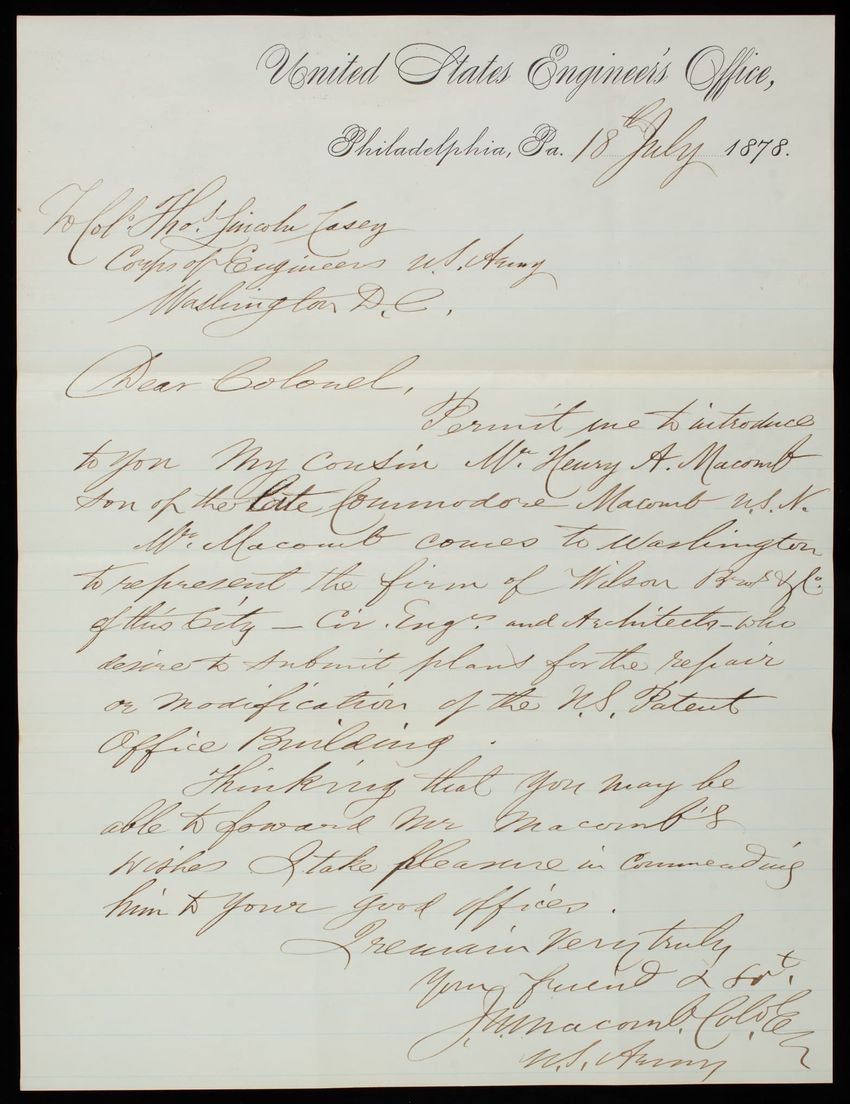 United States Engineer's Office,
Philadelphia, Pa. 18th July 1878.
To Col. Thos. Lincoln Casey
Corps of Engineers U.S. Army
Washington D.C.
Dear Colonel,
Permit me to introduce
to you My Cousin Mr. Henry A. Macomb
son of the late Commodore Macomb U.S.N.
Mr. Macomb comes to Washington
to represent the firm of Wilson Bros & Co.
of this City — Civ. Engrs. and Architects — who
desire to submit plans for the repair
or modification of the U.S. Patent
Office Building.
Thinking that you may be
able to forward Mr Macomb's
wishes I take pleasure in commending
him to your good offices.
I remain very truly
Your friend & Svt.
J.N. Macomb. Col. E
U.S. Army